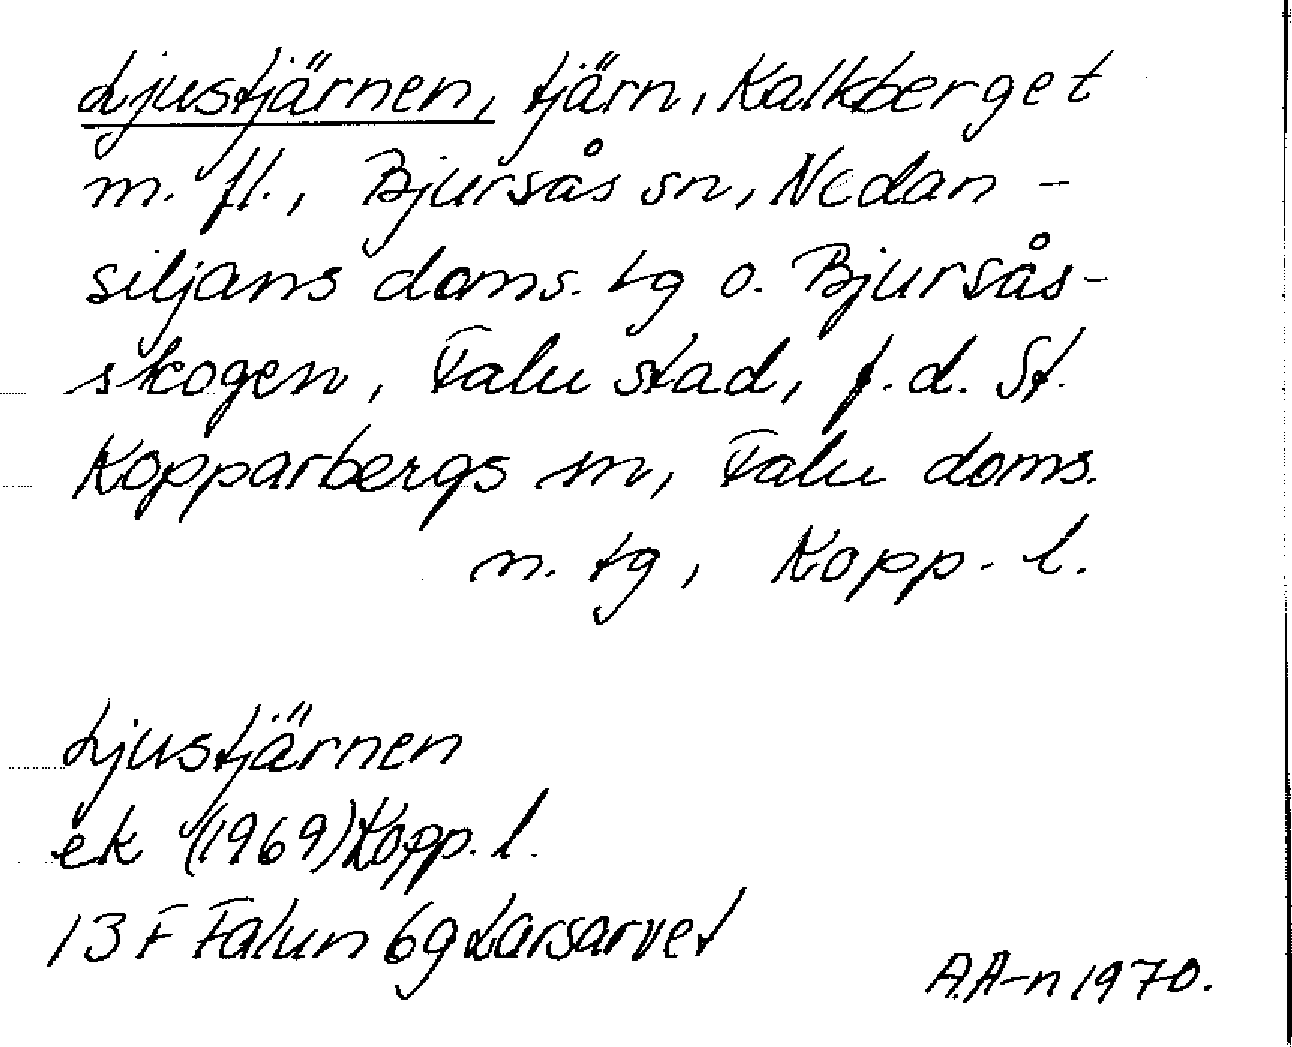 Ljustjärnen, tjärn, Kalkberget
m. fl., Bjursås sn, Nedan-
siljans doms. tg o. Bjursås-
skogen, Falu stad, f.d. St.
Kopparbergs sn, Falu doms.
n. tg, Kopp. l.
Ljustjärnen
ek (1969) Kopp. l.
13 F Falun 6g Larsarvet
A.A-n 1970.